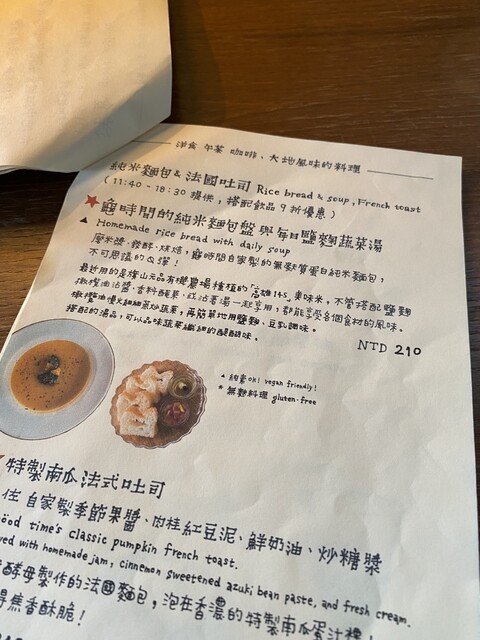 洋食 午茶 咖啡、大地風味的料理
純米麵包 & 法國吐司 Rice bread & soup, French toast
(11:40 - 18:30 提供, 搭配飲品 9 折優惠)
時間的純米麵包盤與每日鹽麴蔬菜湯
▲ Homemade rice bread with daily soup
磨米漿、發酵、烘焙,時間自家製的無麩質蛋白純米麵包,
不可思議的Q彈!
最近用的是旗山元品有機農場種植的「高雄145」美味米,不管搭配鹽麴
橄欖油沾醬、香料醃菜,或沾著湯一起享用,都能享受各個食材的風味。
橄欖油慢火細細蒸炒蔬菜,再簡單地用鹽麴、豆乳調味。
搭配的湯品,可以品味蔬菜纖細的醍醐味。
NTD 210
▲ 純素OK! vegan friendly!
* 無麩料理 gluten-free
特製南瓜法式吐司
佐 自家製季節果醬、肉桂紅豆泥、鮮奶油、炒糖漿
ööd time's classic pumpkin french toast.
ved with homemade jam, cinnemon sweetened azuki bean paste, and fresh cream.
酵母製作的法國麵包,泡在香濃的特製南瓜蛋汁裡
得焦香酥脆!